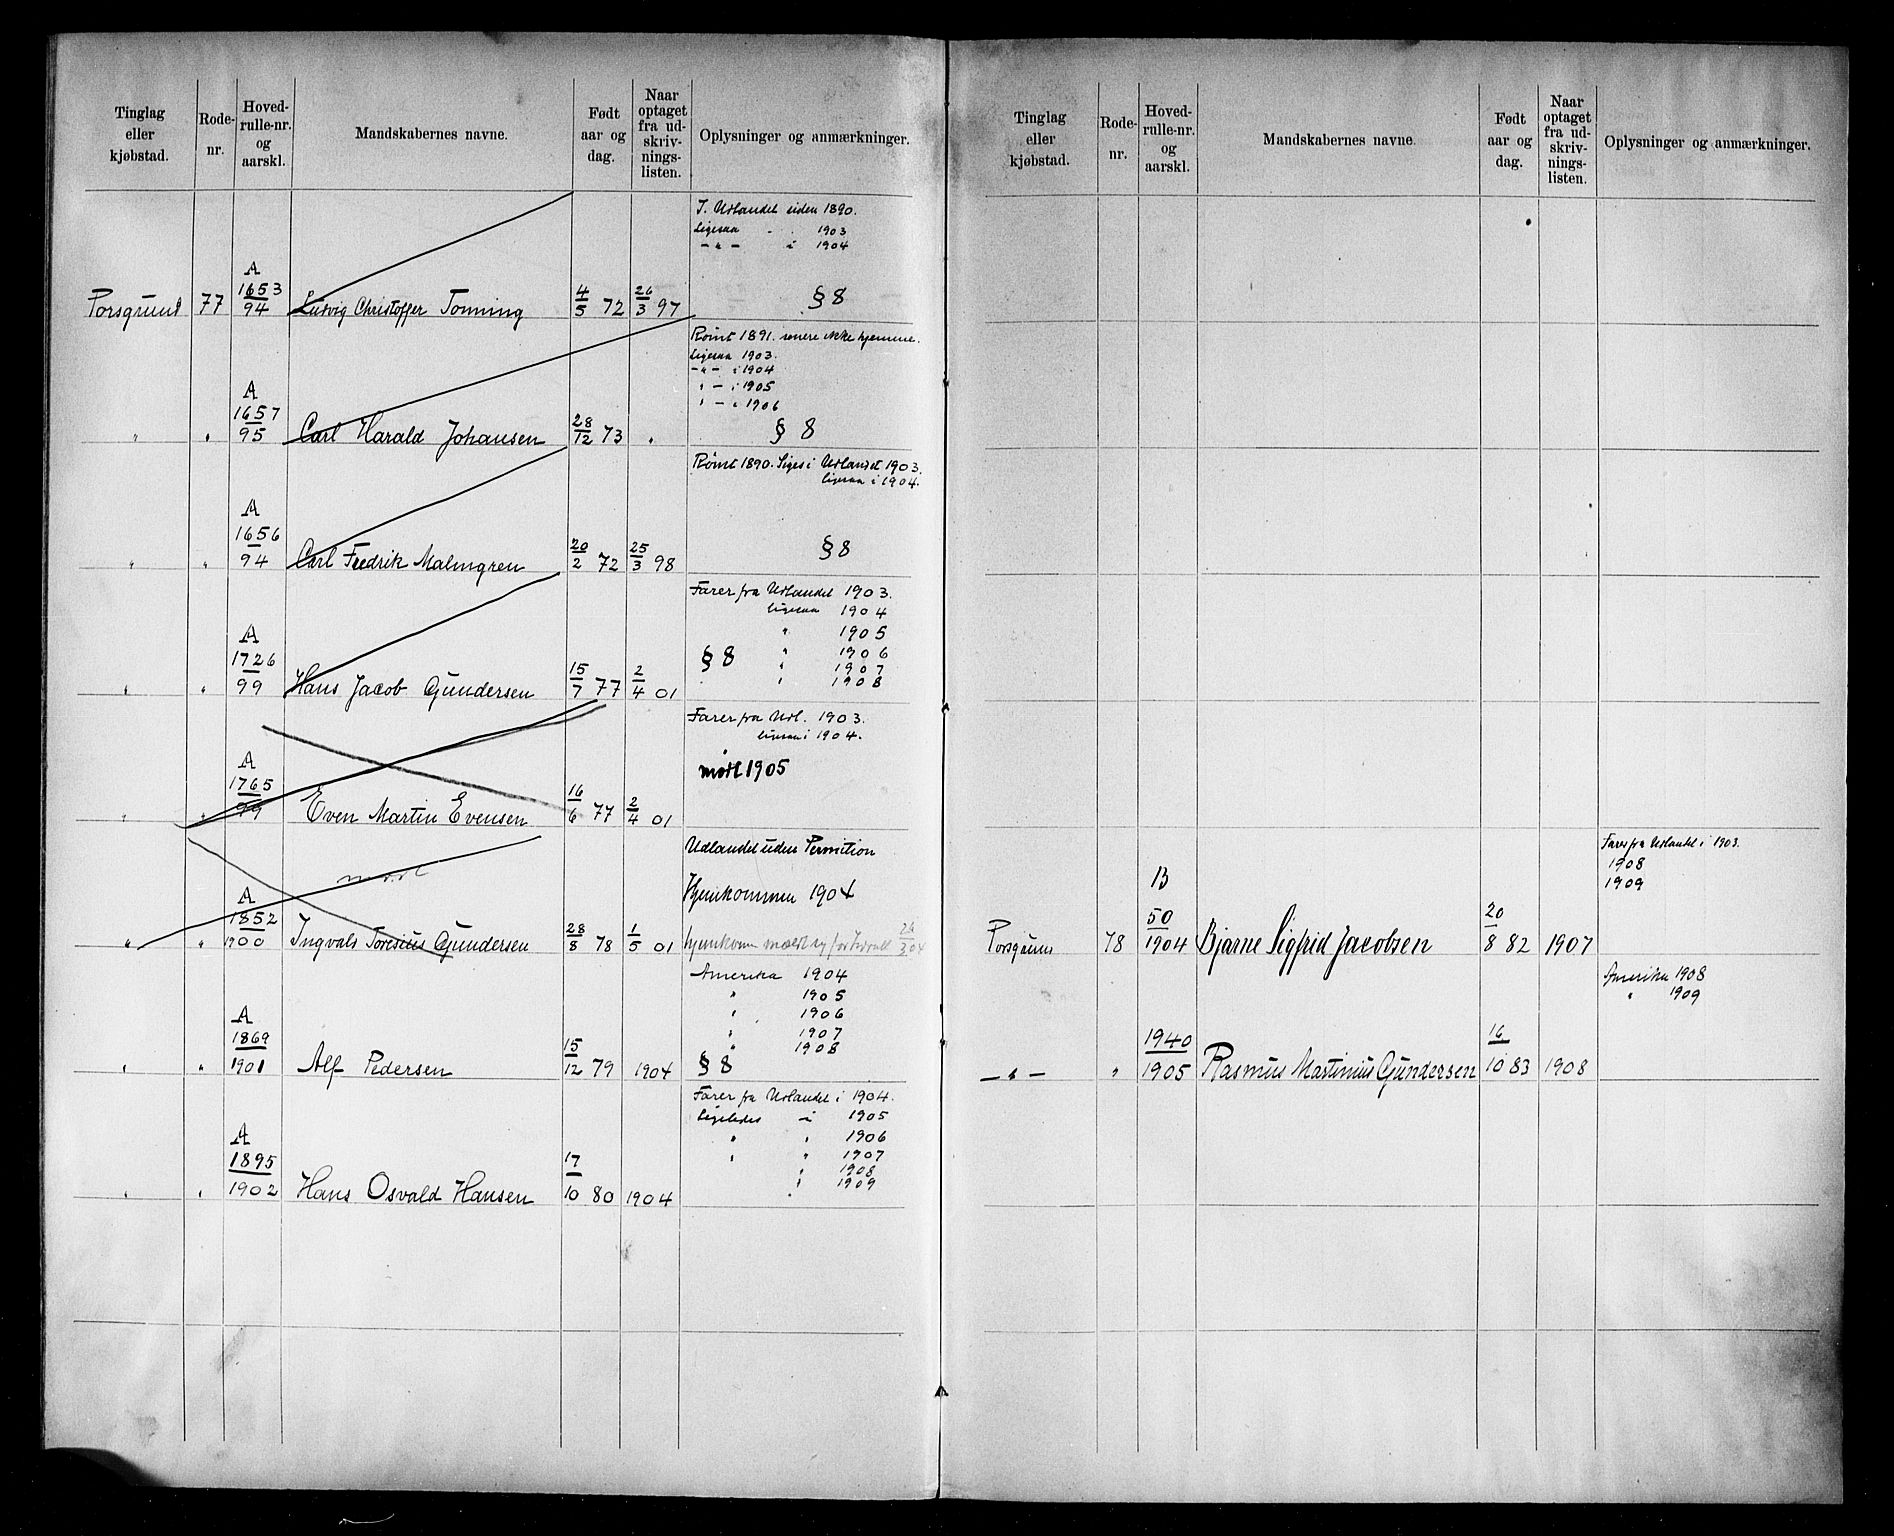 Tinglag eller kjøbstad.
Rode-nr.
Hoved-rulle-nr. og aarskl.
Mandskabernes navne.
Født aar og dag.
Naar optaget fra ud-skriv-nings-listen.
Oplysninger og anmærkninger.
I. Udlandet siden 1890.
Ligesaa - - 1903
-"- i 1904
A
Porsgrund 77 1653/94 Ludvig Christoffer Tonning 4/5 72 26/3 97 § 8
Rømt 1891. senere ikke hjemme.
Ligesaa 1903.
-"- i 1904
" - i 1905
" - i 1906
A
" " 1657/95 Carl Harald Johansen 28/12 73 " § 8
Rømt 1890. Siges i Udlandet 1903.
ligesaa i 1904.
A
" " 1656/94 Carl Fredrik Malmgren 20/2 72 25/3 98 § 8
Farer fra Udlandet 1903.
ligesaa 1904
" 1905
" 1906
" 1907
" 1908
A
" " 1726/99 Hans Jacob Gundersen 15/7 77 2/4 01 § 8
Farer fra Udl. 1903.
ligesaa i 1904.
mødt 1905
A
" " 1765/99 Even Martin Evensen 16/6 77 2/4 01
Udlandet uden Permition
mødt
Hjemkommen 1904
A
" " 1852/1900 Ingvald Toresius Gundersen 28/8 78 1/5 01 hjemkom mældt sig for 26/3 04
Amerika 1904
" 1905
" 1906
" 1907
" 1908
A
" " 1869/1901 Alf Pedersen 15/12 79 1904 § 8
Farer fra Udlandet i 1904.
Ligeledes - i 1905
" " 1906
" " 1907
" 1908
" 1909
A
" " 1895/1902 Hans Osvald Hansen 17/10 80 1904
Tinglag eller kjøbstad.
Rode-nr.
Hoved-rulle-nr. og aarskl.
Mandskabernes navne.
Født aar og dag.
Naar optaget fra ud-skriv-nings-listen.
Oplysninger og anmærkninger.
Farer fra Udlandet i 1903.
1908
1909
B
Porsgrund 78 50/1904 Bjarne Sigfrid Jacobsen 20/8 82 1907
Amerika 1908
" 1909
-"- " 1940/1905 Rasmus Martinius Gundersen 16/10 83 1908